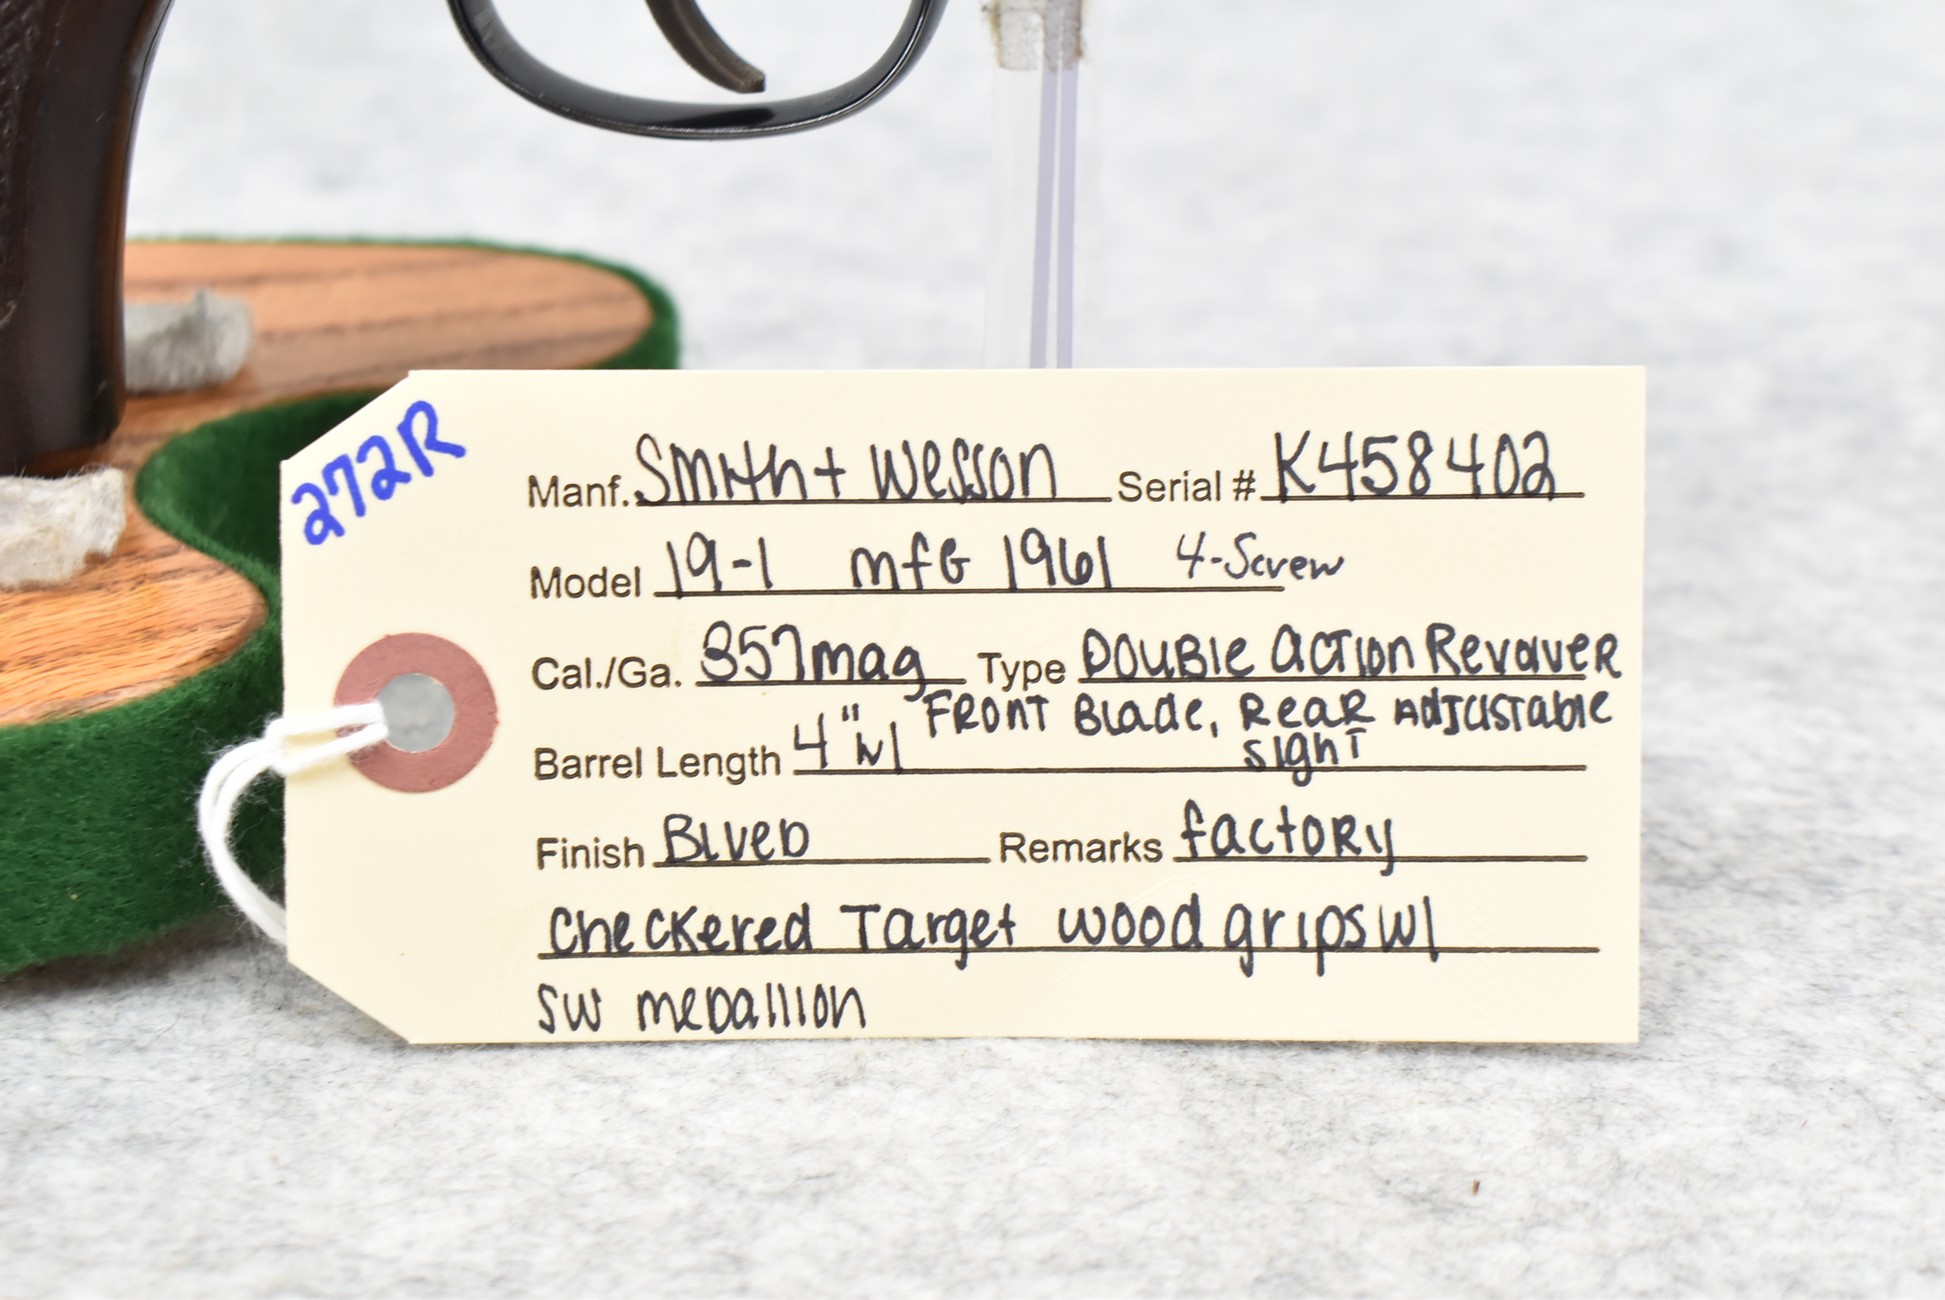 272R
Manf. Smith + Wesson Serial # K458402
Model 19-1 mfG 1961 4-Screw
Cal./Ga. 357mag Type DOUBLE ACTION REVOLVER
Barrel Length 4" w/ FRONT Blade, REAR AdJUSTable
sighT
Finish BLUED Remarks factory
checkered Target wood grips w/
SW medallion